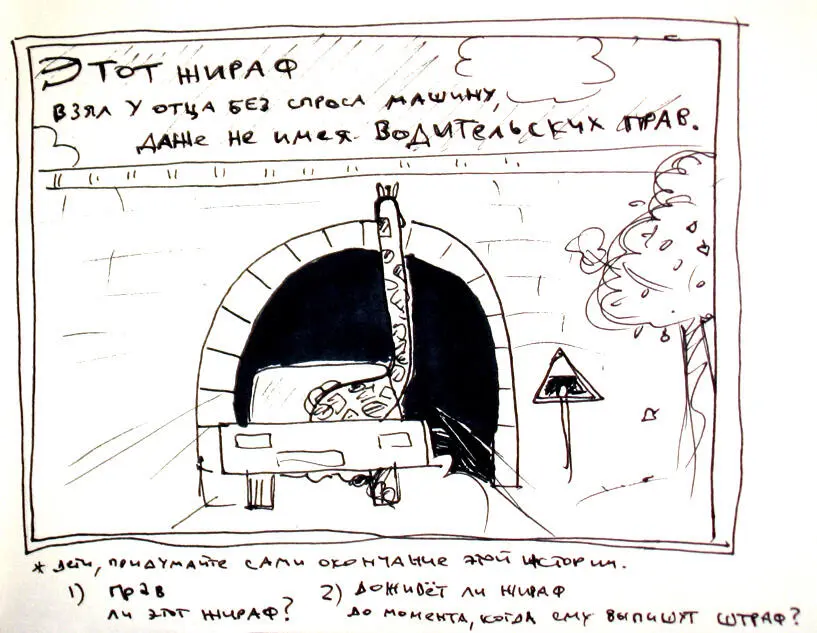 Этот жираф
взял у отца без спроса машину,
даже не имея водительских прав.
* дети, придумайте сами окончание этой истории.
1) прав
ли этот жираф?
2) доживёт ли жираф
до момента, когда ему выпишут штраф?